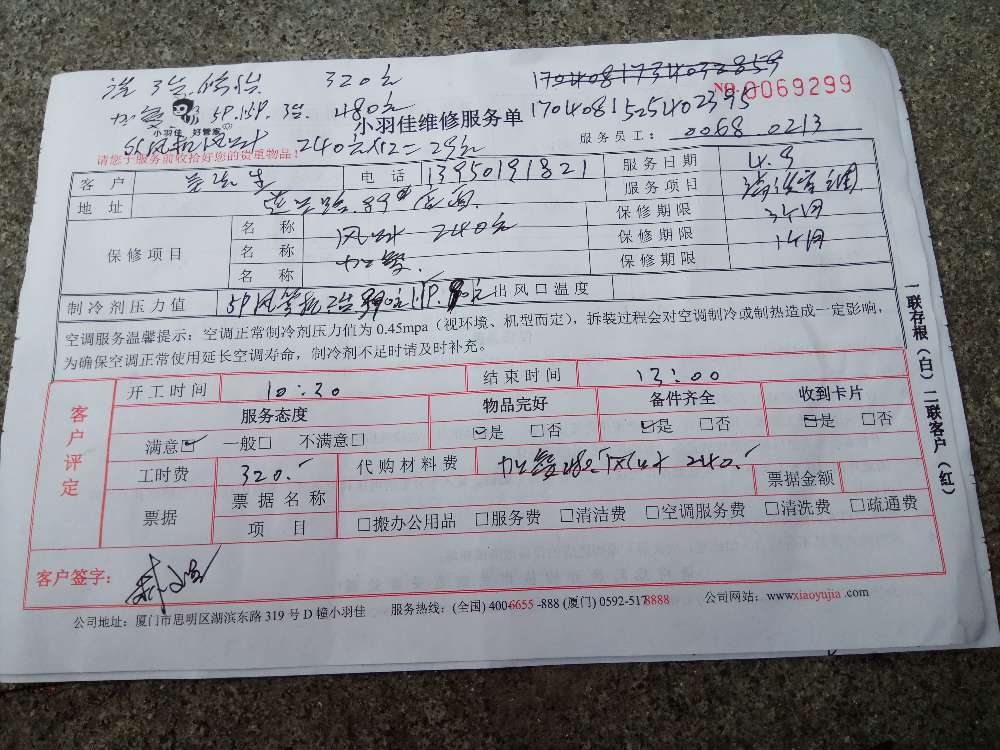 洗3台 320元 1704081734032859
加氨 5P.1.5P. 3台. 480元 NO.0069299
小羽佳 好管家 小羽佳维修服务单 1704081525402395
240元X12=29元 服务员工: 0068 0213
请您于服务前收拾好您的贵重物品!
客户 吴先生 电话 13950191821 服务日期 4.9
地址 89# 店面 服务项目 清洗空调
保修项目 名称 风叶 240元 保修期限 3个月
名称 加氨. 保修期限 1个月
名称 保修期限
制冷剂压力值 5P风管机 出风口温度
空调服务温馨提示:空调正常制冷剂压力值为0.45mpa(视环境、机型而定),拆装过程会对空调制冷或制热造成一定影响,
为确保空调正常使用延长空调寿命,制冷剂不足时请及时补充。
一联存根(白)二联客户(红)
客户评定
开工时间 10:30 结束时间 13:00
服务态度 物品完好 备件齐全 收到卡片
满意☑ 一般□ 不满意□ ☑是 □否 ☑是 □否 ☑是 □否
工时费 320.- 代购材料费 风叶 240.- 票据金额
票据 票据名称
项目 □搬办公用品 □服务费 □清洁费 □空调服务费 □清洗费 □疏通费
客户签字:
公司地址:厦门市思明区湖滨东路319号D幢小羽佳 服务热线:(全国)4006655-888(厦门)0592-5178888 公司网站:www.xiaoyujia.com